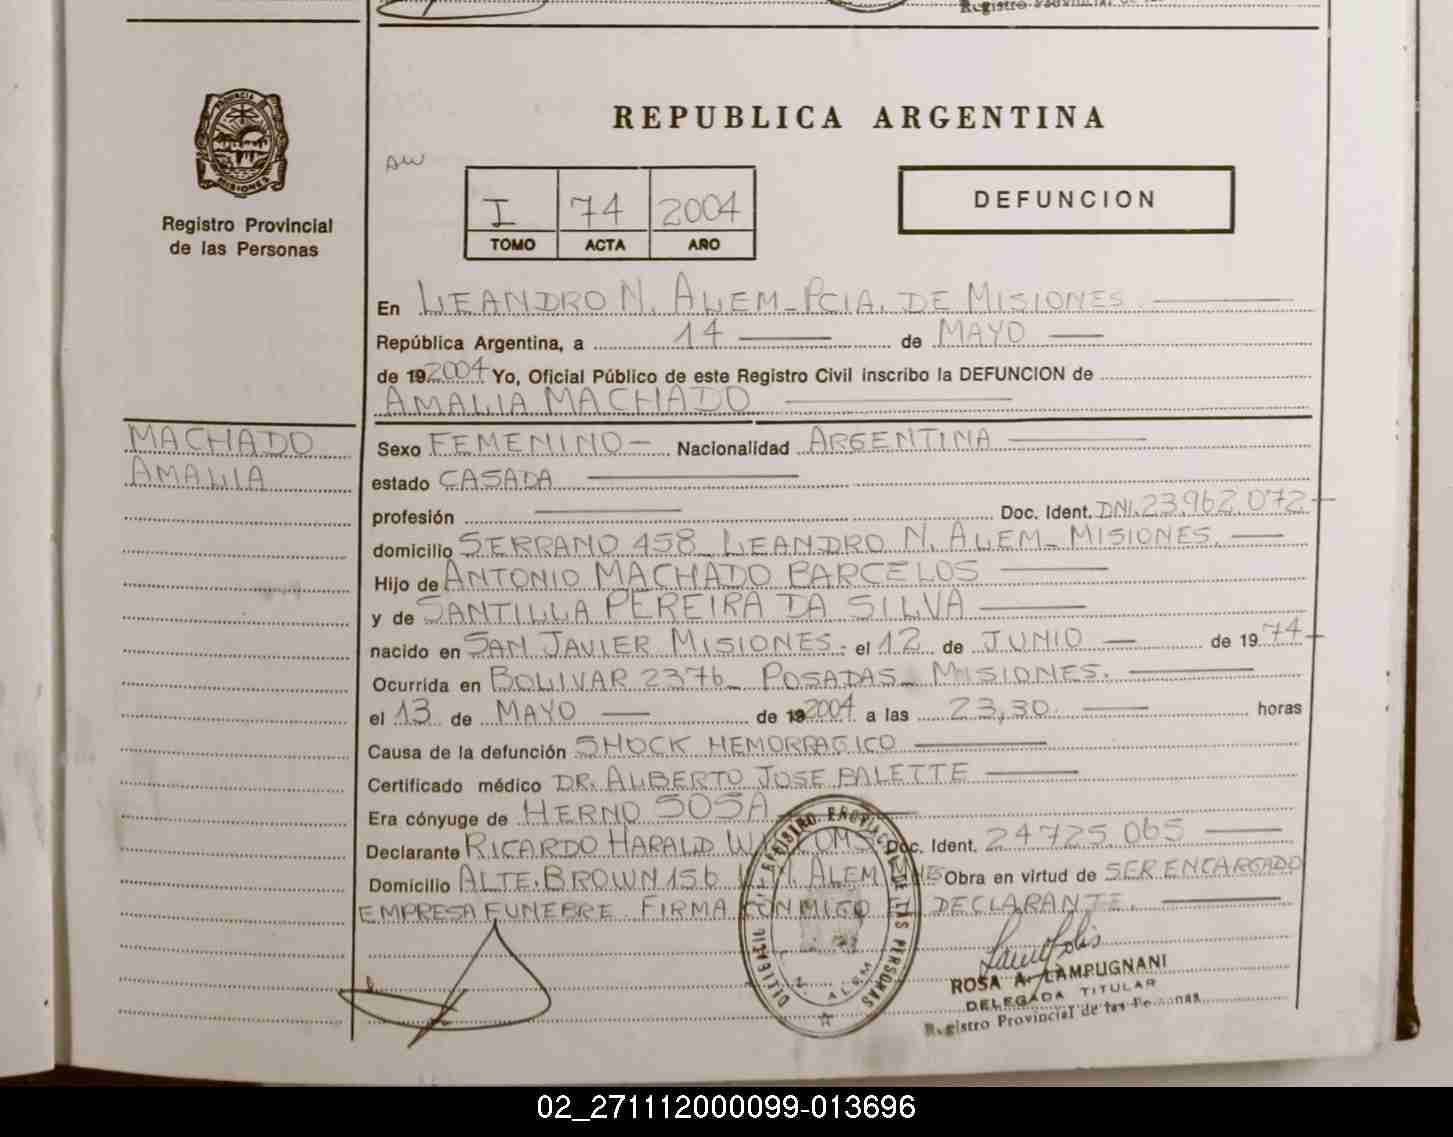 Registro Provincial de las
REPUBLICA ARGENTINA
PROVINCIA
MISIONES
Registro Provincial
de las Personas
AW
I 74 2004
TOMO ACTA AÑO
DEFUNCION
En LEANDRO N. ALEM - PCIA. DE MISIONES
República Argentina, a 14 de MAYO
de 19 2004 Yo, Oficial Público de este Registro Civil inscribo la DEFUNCION de
AMALIA MACHADO
MACHADO
AMALIA
Sexo FEMENINO - Nacionalidad ARGENTINA
estado CASADA
profesión Doc. Ident. DNI. 23.962.072
domicilio SERRANO 458 - LEANDRO N. ALEM - MISIONES.
Hijo de ANTONIO MACHADO BARCELOS
y de SANTILLA PEREIRA DA SILVA
nacido en SAN JAVIER MISIONES - el 12 de JUNIO de 19 74
Ocurrida en BOLIVAR 2376 - POSADAS - MISIONES.
el 13 de MAYO de 19 2004 a las 23,30 horas
Causa de la defunción SHOCK HEMORRAGICO
Certificado médico DR. ALBERTO JOSE PALETTE
Era cónyuge de HERNO SOSA
Declarante RICARDO HARALD Doc. Ident. 24725.065
Domicilio ALTE. BROWN 156 L.N. ALEM MNES Obra en virtud de SER ENCARGADO
EMPRESA FUNEBRE. FIRMA CONMIGO EL DECLARANTE.
REGISTRO PROVINCIAL DE LAS PERSONAS
ALEM
ROSA A. LAMPUGNANI
DELEGADA TITULAR
Registro Provincial de las Personas
02_271112000099-013696